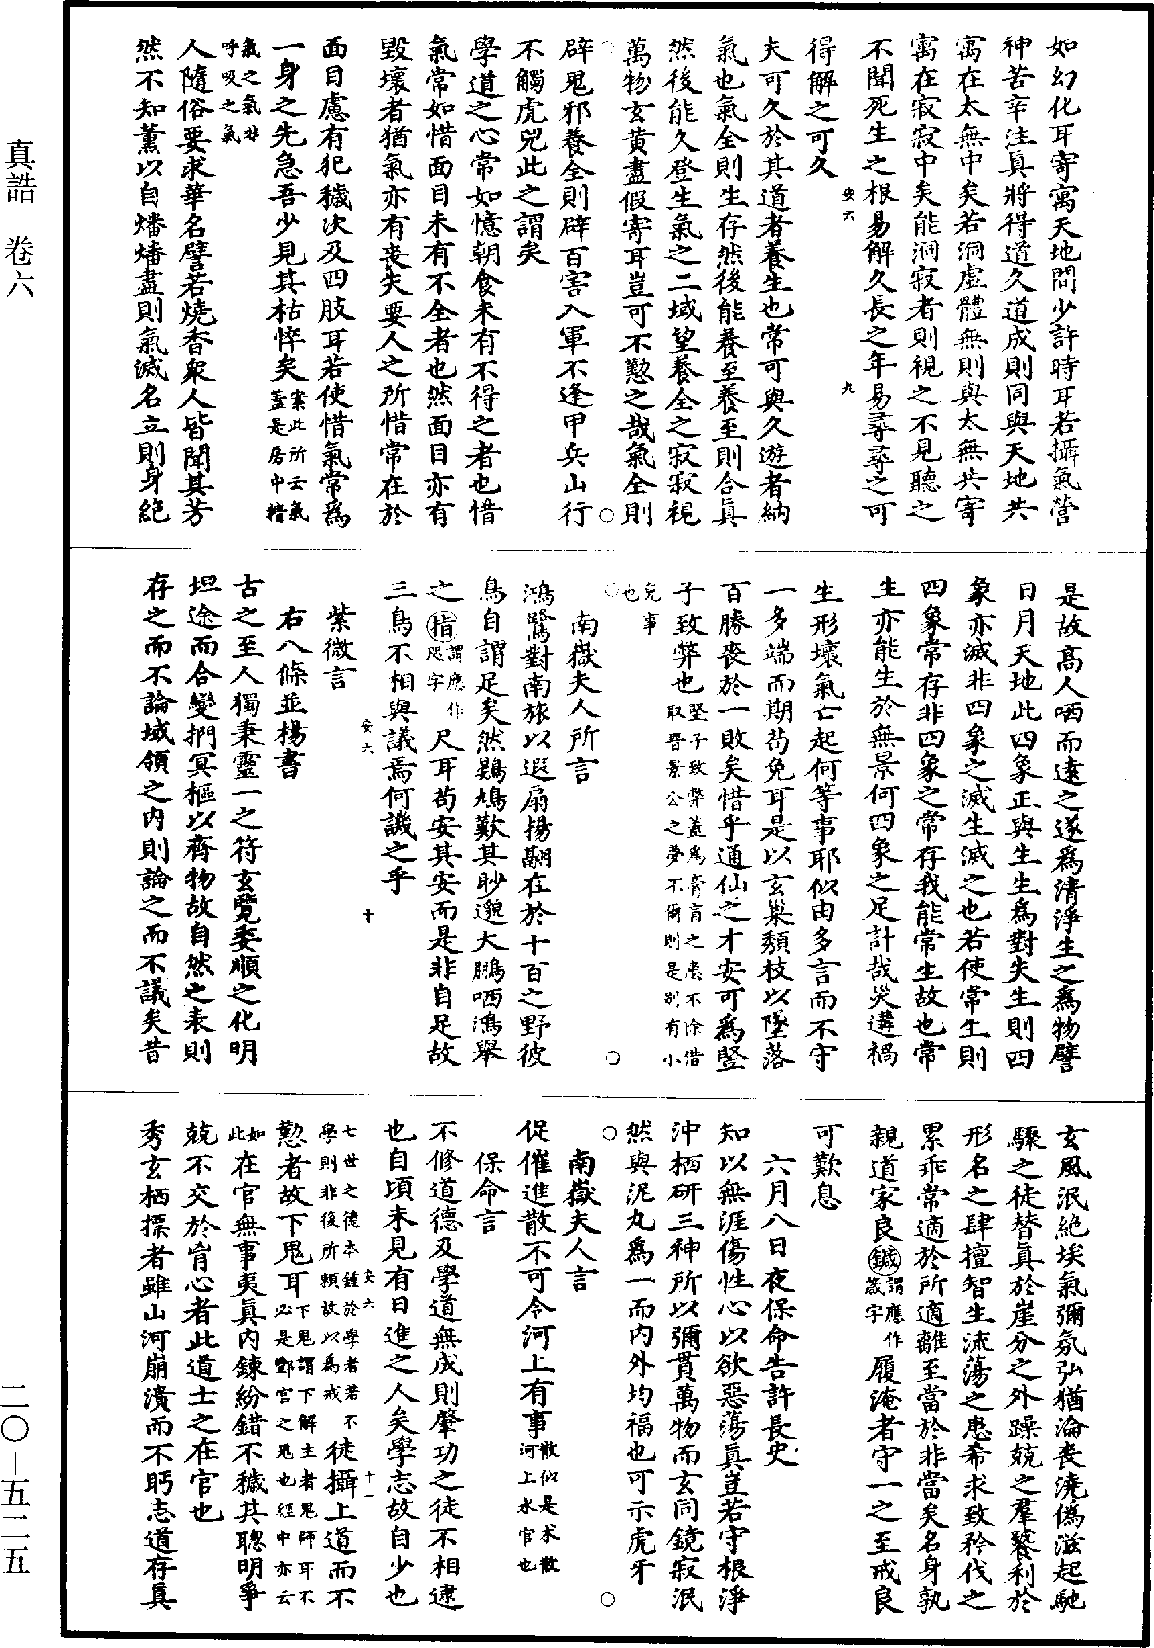 真誥　卷六
二〇—五二五
如幻化耳寄寓天地間少許時耳若攝氣營
神苦辛注真將得道久道成則同與天地共
寓在太無中矣若洞虛體無則與太無共寄
寓在寂寂中矣能洞寂者則視之不見聽之
不聞死生之根易解久長之年易尋尋之可
得解之可久
安六　九
夫可久於其道者養生也常可與久遊者納
氣也氣全則生存然後能養至養至則合真
然後能久登生氣之二域望養全之寂寂視
萬物玄黄盡假寄耳豈可不懃之哉氣全則
辟鬼邪養全則辟百害入軍不逢甲兵山行
不觸虎兕此之謂矣
學道之心常如憶朝食未有不得之者也惜
氣常如惜面目未有不全者也然面目亦有
毀壞者猶氣亦有喪失要人之所惜常在於
面目慮有犯穢次及四肢耳若使惜氣常爲
一身之先急吾少見其枯悴矣案此所云氣蓋是居中精
氣之氣非呼吸之氣
人隨俗要求華名譬若燒香衆人皆聞其芳
然不知薰以自燔燔盡則氣滅名立則身絶
是故高人哂而遠之遂爲清淨生之爲物譬
日月天地此四象正與生生爲對失生則四
象亦滅非四象之滅生滅之也若使常生則
四象常存非四象之常存我能常生故也常
生亦能生於無景何四象之足計哉災遘禍
生形壞氣亡起何等事耶似由多言而不守
一多端而期苟免耳是以玄巢頽枝以墜落
百勝喪於一敗矣惜乎通仙之才安可爲竪
子致弊也竪子致弊蓋爲膏肓之患不除借取晉景公之夢不爾則是別有小
兒事也
南嶽夫人所言
鴻鷺對南旅以遐扇揚翮在於十百之野彼
鳥自謂足矣然鷃鳩歎其眇邈大鵬哂鴻舉
之指謂應作咫字尺耳苟安其安而是非自足故
三鳥不相與議焉何譏之乎
安六　十
紫微言
右八條並楊書
古之至人獨秉靈一之符玄覽委順之化明
坦途而合變捫冥樞以齊物故自然之表則
存之而不論域領之内則論之而不議矣昔
玄風泯絶埃氣彌氛弘猶淪喪澆僞滋起馳
驟之徒替真於崖分之外躁競之羣饕利於
形名之肆擅智生流蕩之患希求致矜伐之
累乖常適於所適離至當於非當矣名身孰
親道家良鍼謂應作箴字履淹者守一之至戒良
可歎息
六月八日夜保命告許長史
知以無涯傷性心以欲惡蕩真豈若守根淨
沖栖研三神所以彌貫萬物而玄同鏡寂泯
然與泥丸爲一而内外均福也可示虎牙
南嶽夫人言
促催進散不可令河上有事散似是求散河上水官也
保命言
不修道德及學道無成則肇功之徒不相逮
也自頃未見有日進之人矣學志故自少也
安六　十一
七世之德本鍾於學者若不學則非後所賴故以爲戒徒攝上道而不
懃者故下鬼耳下鬼謂下解主者鬼師耳不必是酆宫之鬼也經中亦云
如此在官無事夷真内鍊紛錯不穢其聰明爭
競不交於胷心者此道士之在官也
秀玄栖標者雖山河崩潰而不眄志道存真